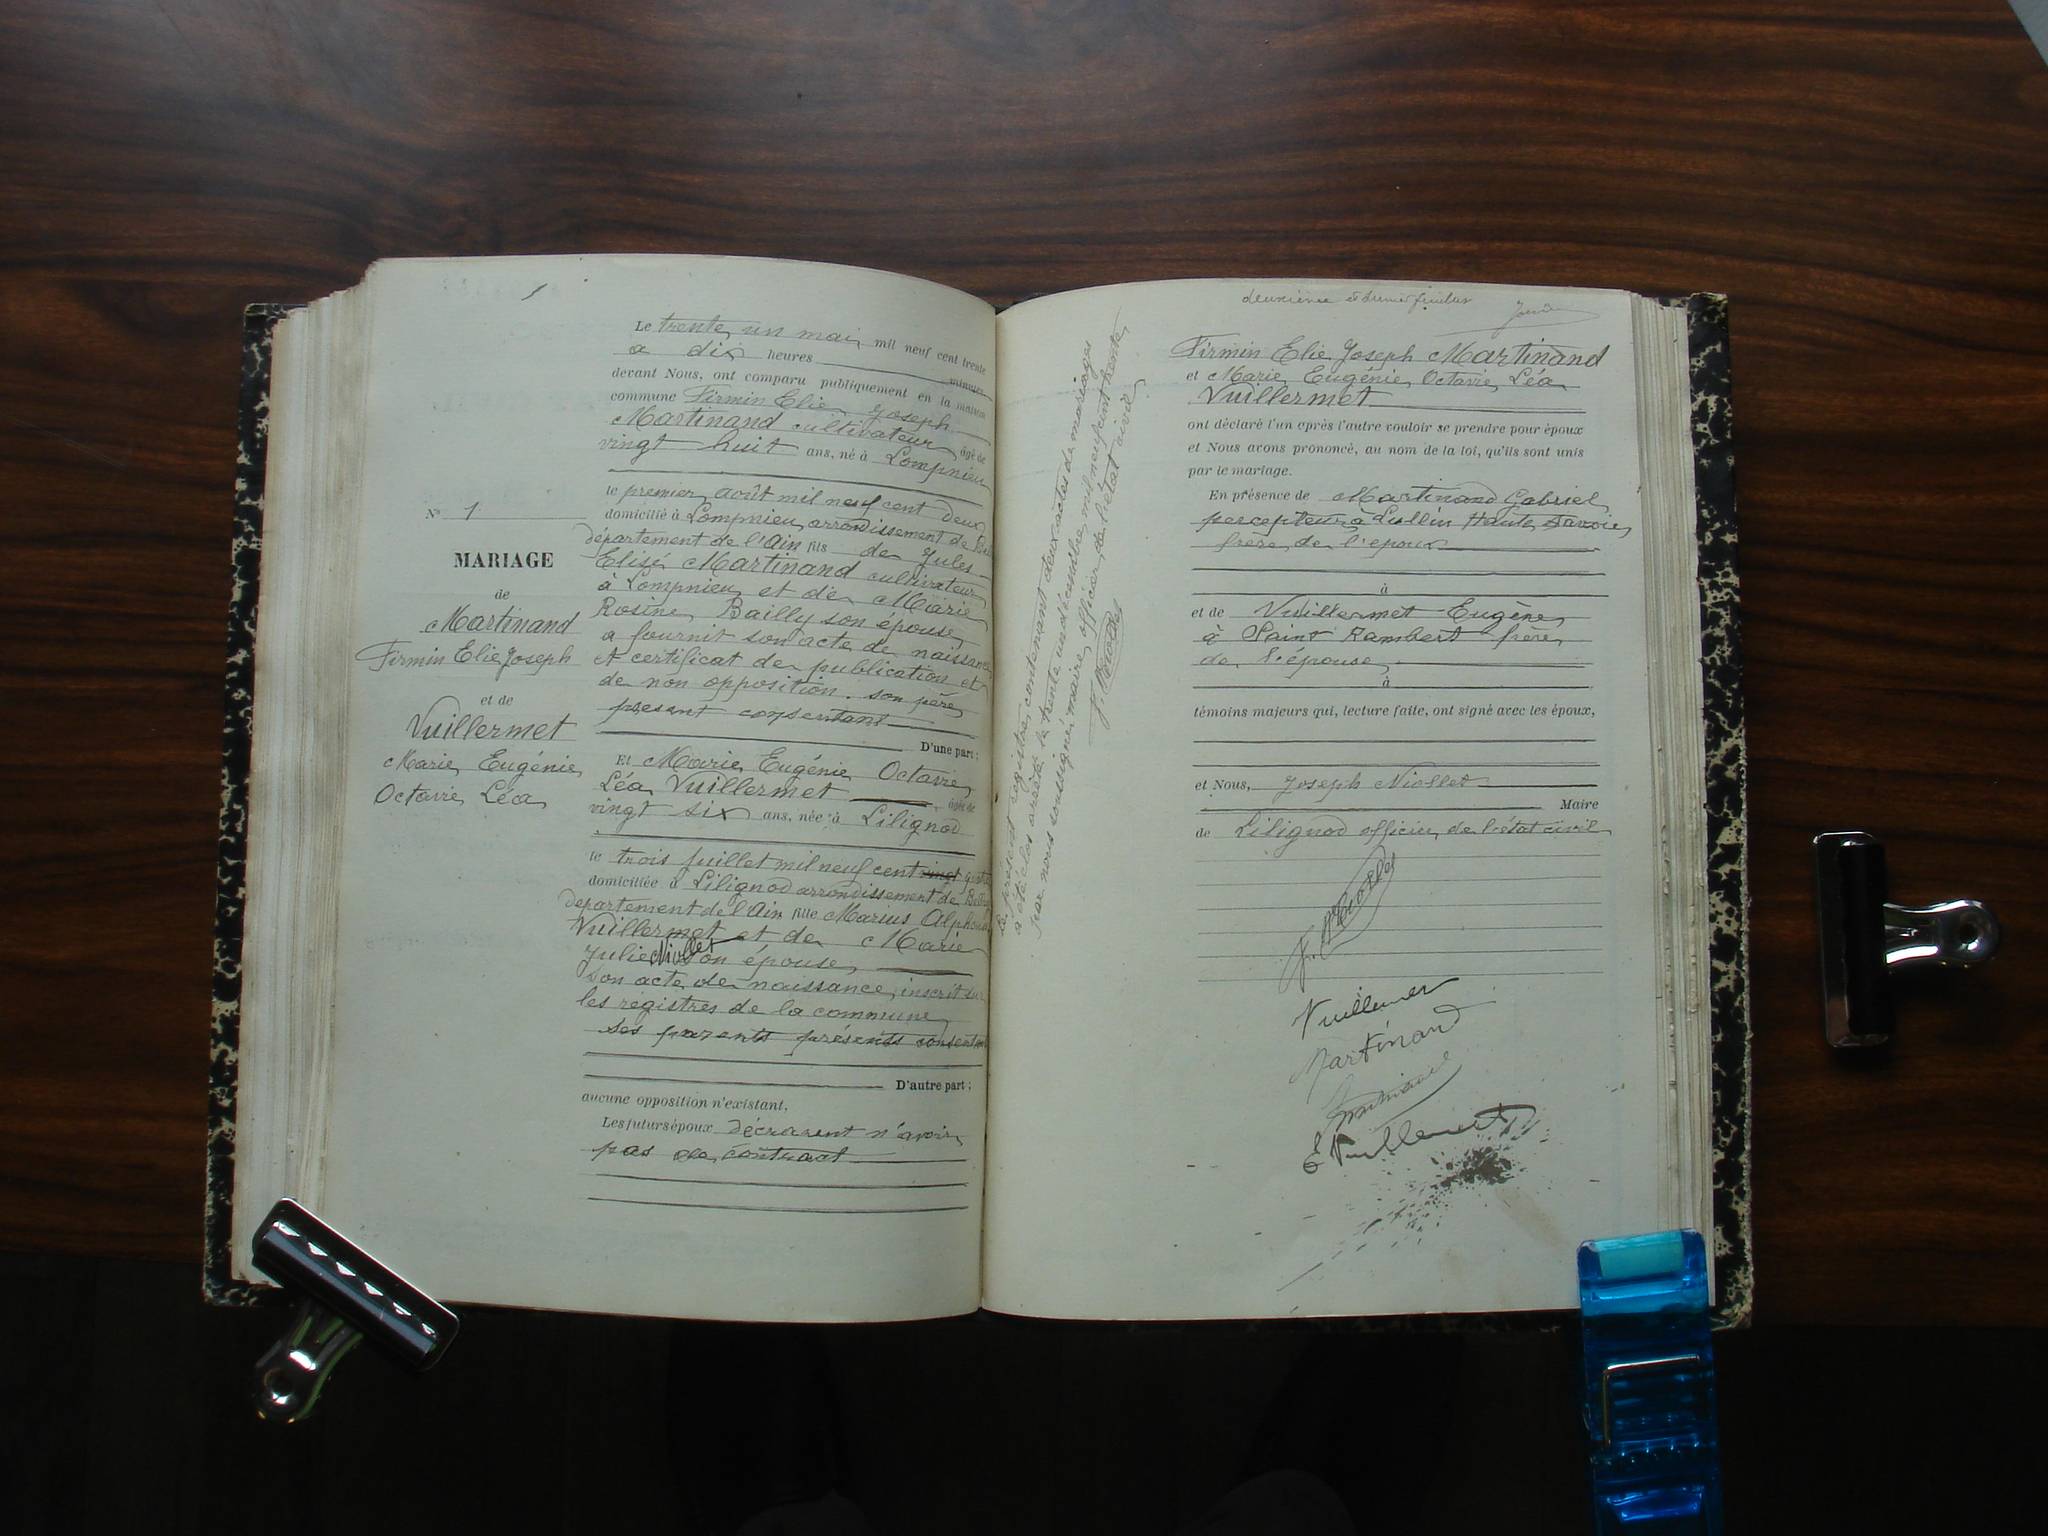 Nº 1
MARIAGE
de
Martinand
Firmin Elie Joseph
et de
Vuillermet
Marie Eugénie
Octavie Léa
Le trente un mai mil neuf cent trente
a dix heures minutes
devant Nous, ont comparu publiquement en la maison
commune Firmin Elie Joseph
Martinand cultivateur âgé de
vingt huit ans, né à Lompnieu
le premier août mil neuf cent deux
domicilié à Lompnieu arrondissement de
département de l'Ain fils de Jules
Elisé Martinand cultivateur
à Lompnieu et de Marie
Rosine Bailly son épouse
a fournit son acte de naissance
et certificat de publication et
de non opposition. son père
présent consentant
D'une part;
Et Marie Eugénie Octavie
Léa Vuillermet âgée de
vingt six ans, née à Lilignod
le trois juillet mil neuf cent vingt
domiciliée à Lilignod arrondissement de
département de l'Ain fille Marius Alphonse
Vuillermet et de Marie
Julie Niollet son épouse
son acte de naissance inscrit sur
les régistres de la commune
ses parents présents consentant
D'autre part;
aucune opposition n'existant,
Les futurs époux décrarent n'avoir
pas de contract
Le présent registre contenant deux actes de mariages
a été clos arrêté le trente un décembre mil neuf cent trente
par nous soussigné maire officier de l'état civil
J. Niollet
deuxième et dernier feuillet
Firmin Elie Joseph Martinand
et Marie Eugénie Octavie Léa
Vuillermet
ont déclaré l'un après l'autre vouloir se prendre pour époux
et Nous avons prononcé, au nom de la loi, qu'ils sont unis
par le mariage.
En présence de Martinand Gabriel
percepteur à Lullin Haute Savoie
frère de l'époux
à
et de Vuillermet Eugène
à Saint Rambert frère
de l'épouse
à
témoins majeurs qui, lecture faite, ont signé avec les époux,
et Nous, Joseph Niollet
Maire
de Lilignod officier de l'état civil
J. Niollet
Vuillermet
Martinand
Martinand
E Vuillermet